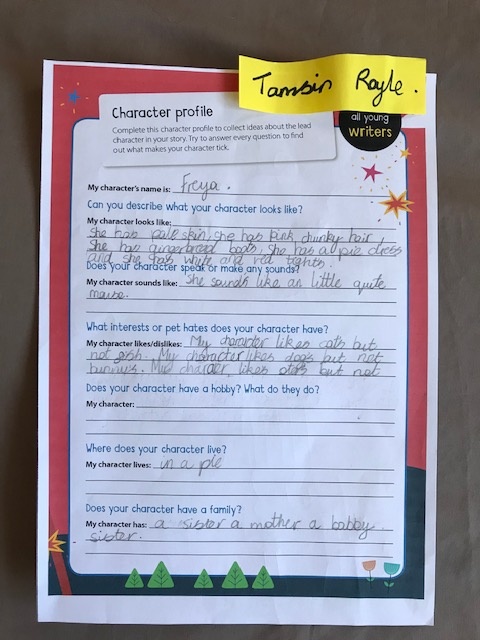 Tamsin Royle.
all young
writers
Character profile
Complete this character profile to collect ideas about the lead
character in your story. Try to answer every question to find
out what makes your character tick.
My character's name is: Freya.
Can you describe what your character looks like?
My character looks like:
She has pale skin, she has pink chunky hair
She has gingerbread boots, she has a pie dress
and she has white and red tights!
Does your character speak or make any sounds?
My character sounds like: She sounds like an little quite
mouse.
What interests or pet hates does your character have?
My character likes/dislikes: My character likes cats but
not fish. My character likes dogs but not
bunny's. My character, likes but not
Does your character have a hobby? What do they do?
My character:
Where does your character live?
My character lives: in a pie
Does your character have a family?
My character has: a sister a mother a babby
sister.